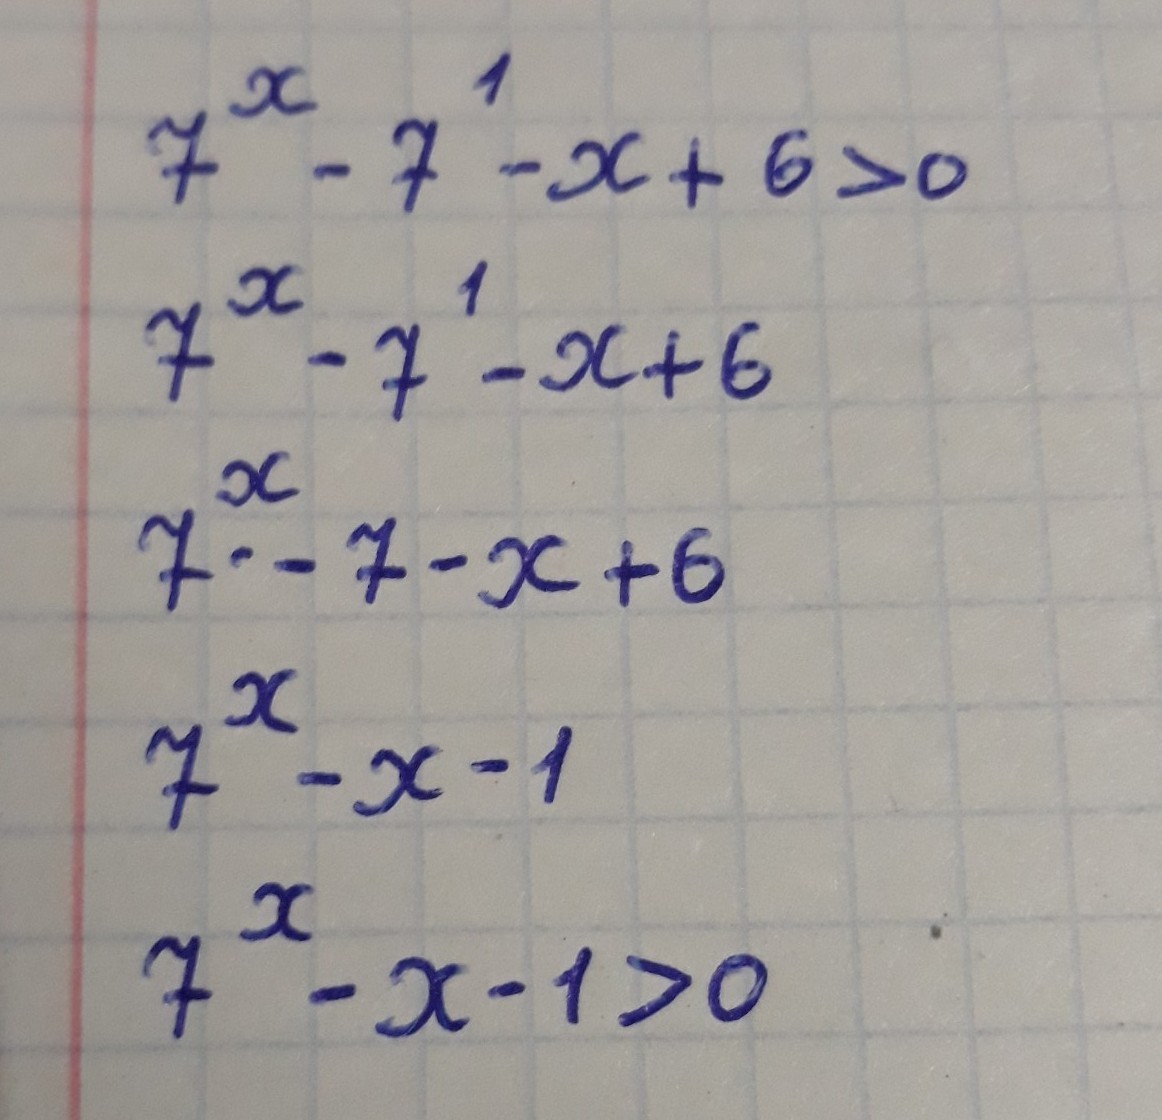 7^x - 7^1 - x + 6 > 0
7^x - 7^1 - x + 6
7^x - 7 - x + 6
7^x - x - 1
7^x - x - 1 > 0